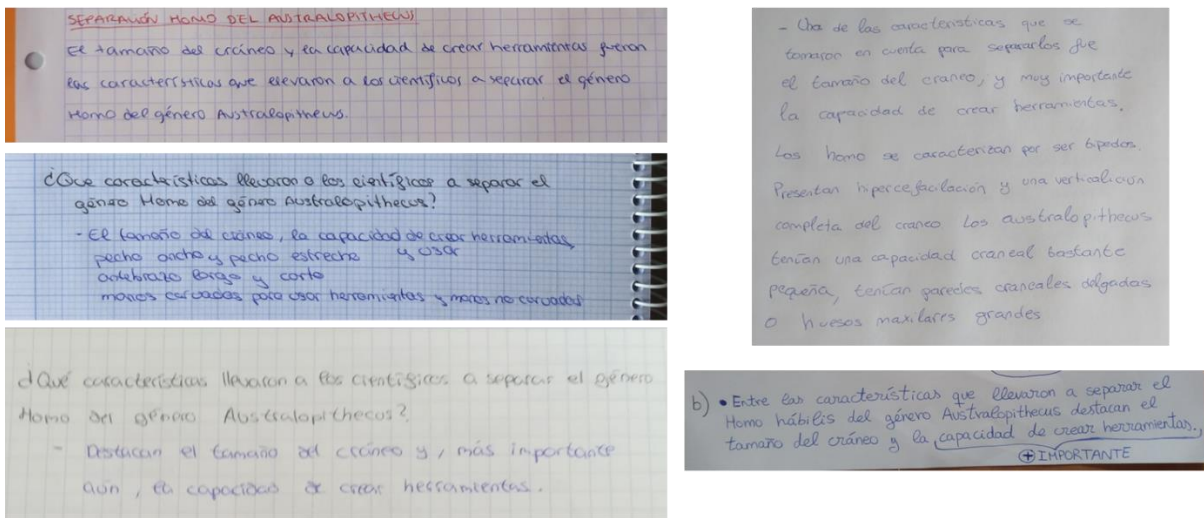 SEPARACIÓN HOMO DEL AUSTRALOPITHECUS
El tamaño del cráneo y la capacidad de crear herramientas fueron
las características que elevaron a los científicos a separar el género
Homo del género Australopithecus.
¿Que características llevaron a los científicos a separar el
género Homo del género Australopithecus?
- El tamaño del cráneo, la capacidad de crear herramientas,
pecho ancho y pecho estrecho y usar
antebrazo largo y corto
manos curvadas para usar herramientas y manos no curvadas
¿Qué características llevaron a los científicos a separar el género
Homo del género Australopithecus?
- Destacan el tamaño del cráneo y, más importante
aún, la capacidad de crear herramientas.
- Una de las características que se
tomaron en cuenta para separarlos fue
el tamaño del craneo, y muy importante
la capacidad de crear herramientas.
Los homo se caracterizan por ser bípedos.
Presentan hipercefacilación y una verticalización
completa del craneo. Los australopithecus
tenían una capacidad craneal bastante
pequeña, tenían paredes craneales delgadas
o huesos maxilares grandes
b) • Entre las características que llevaron a separar el
Homo hábilis del género Australopithecus destacan el
tamaño del cráneo y la capacidad de crear herramientas.
+ IMPORTANTE